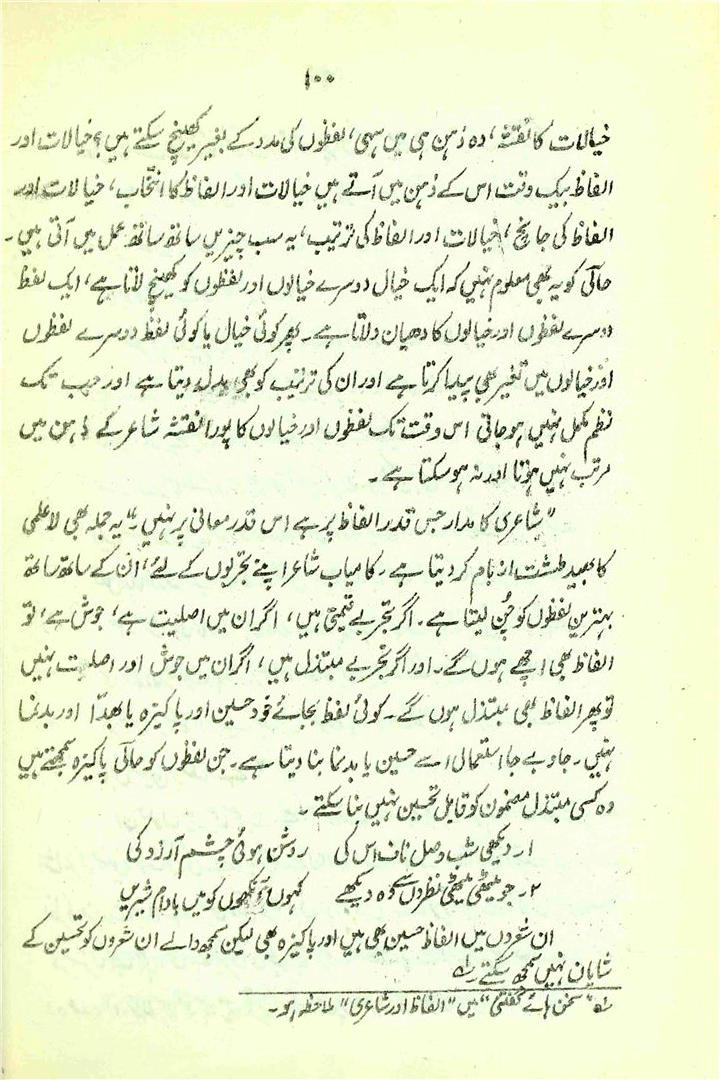 ۱۰۰
خیالات کا نقشہ، وہ ذہن ہی میں سہی، لفظوں کی مدد کے بغیر کھینچ سکتے ہیں؟ خیالات اور
الفاظ بیک وقت اس کے ذہن میں آتے ہیں خیالات اور الفاظ کا انتخاب، خیالات اور
الفاظ کی جانچ، خیالات اور الفاظ کی ترتیب، یہ سب چیزیں ساتھ ساتھ عمل میں آتی ہیں۔
حالی کو یہ بھی معلوم نہیں کہ ایک خیال دوسرے خیالوں اور لفظوں کو کھینچ لاتا ہے، ایک لفظ
دوسرے لفظوں اور خیالوں کا دھیان دلاتا ہے۔ پھر کوئی خیال یا کوئی لفظ دوسرے لفظوں
اور خیالوں میں تغیر بھی پیدا کرتا ہے اور ان کی ترتیب کو بھی بدل دیتا ہے اور جب تک
نظم مکمل نہیں ہو جاتی اس وقت تک لفظوں اور خیالوں کا پورا نقشہ شاعر کے ذہن میں
مرتب نہیں ہوتا اور نہ ہو سکتا ہے۔
"شاعری کا مدار جس قدر الفاظ پر ہے اس قدر معانی پر نہیں۔" یہ جملہ بھی لاعلمی
کا بھید طشت از بام کر دیتا ہے۔ کامیاب شاعر اپنے تجربوں کے لئے، ان کے ساتھ ساتھ
بہترین لفظوں کو چُن لیتا ہے۔ اگر تجربے قیمتی ہیں، اگر ان میں اصلیت ہے، جوش ہے، تو
الفاظ بھی اچھے ہوں گے۔ اور اگر تجربے مبتذل ہیں، اگر ان میں جوش اور اصلیت نہیں
تو پھر الفاظ بھی مبتذل ہوں گے۔ کوئی لفظ بجائے خود حسین اور پاکیزہ یا بھدّا اور بدنما
نہیں۔ جا و بے جا استعمال اسے حسین یا بدنما بنا دیتا ہے۔ جن لفظوں کو حالی پاکیزہ سمجھتے ہیں
وہ کسی مبتذل مضمون کو قابل تحسین نہیں بنا سکتے۔
۱۔ دیکھی شب وصل ناف اس کی روشن ہوئی چشم آرزو کی
۲۔ جو میٹھی میٹھی نظروں سے وہ دیکھے کہوں آنکھوں کو میں بادام شیریں
ان شعروں میں الفاظ حسین بھی ہیں اور پاکیزہ بھی لیکن سمجھ والے ان شعروں کو تحسین کے
شایان نہیں سمجھ سکتے۔ لہ
لہ "سخن ہائے گفتنی" میں "الفاظ اور شاعری" ملاحظہ ہو۔